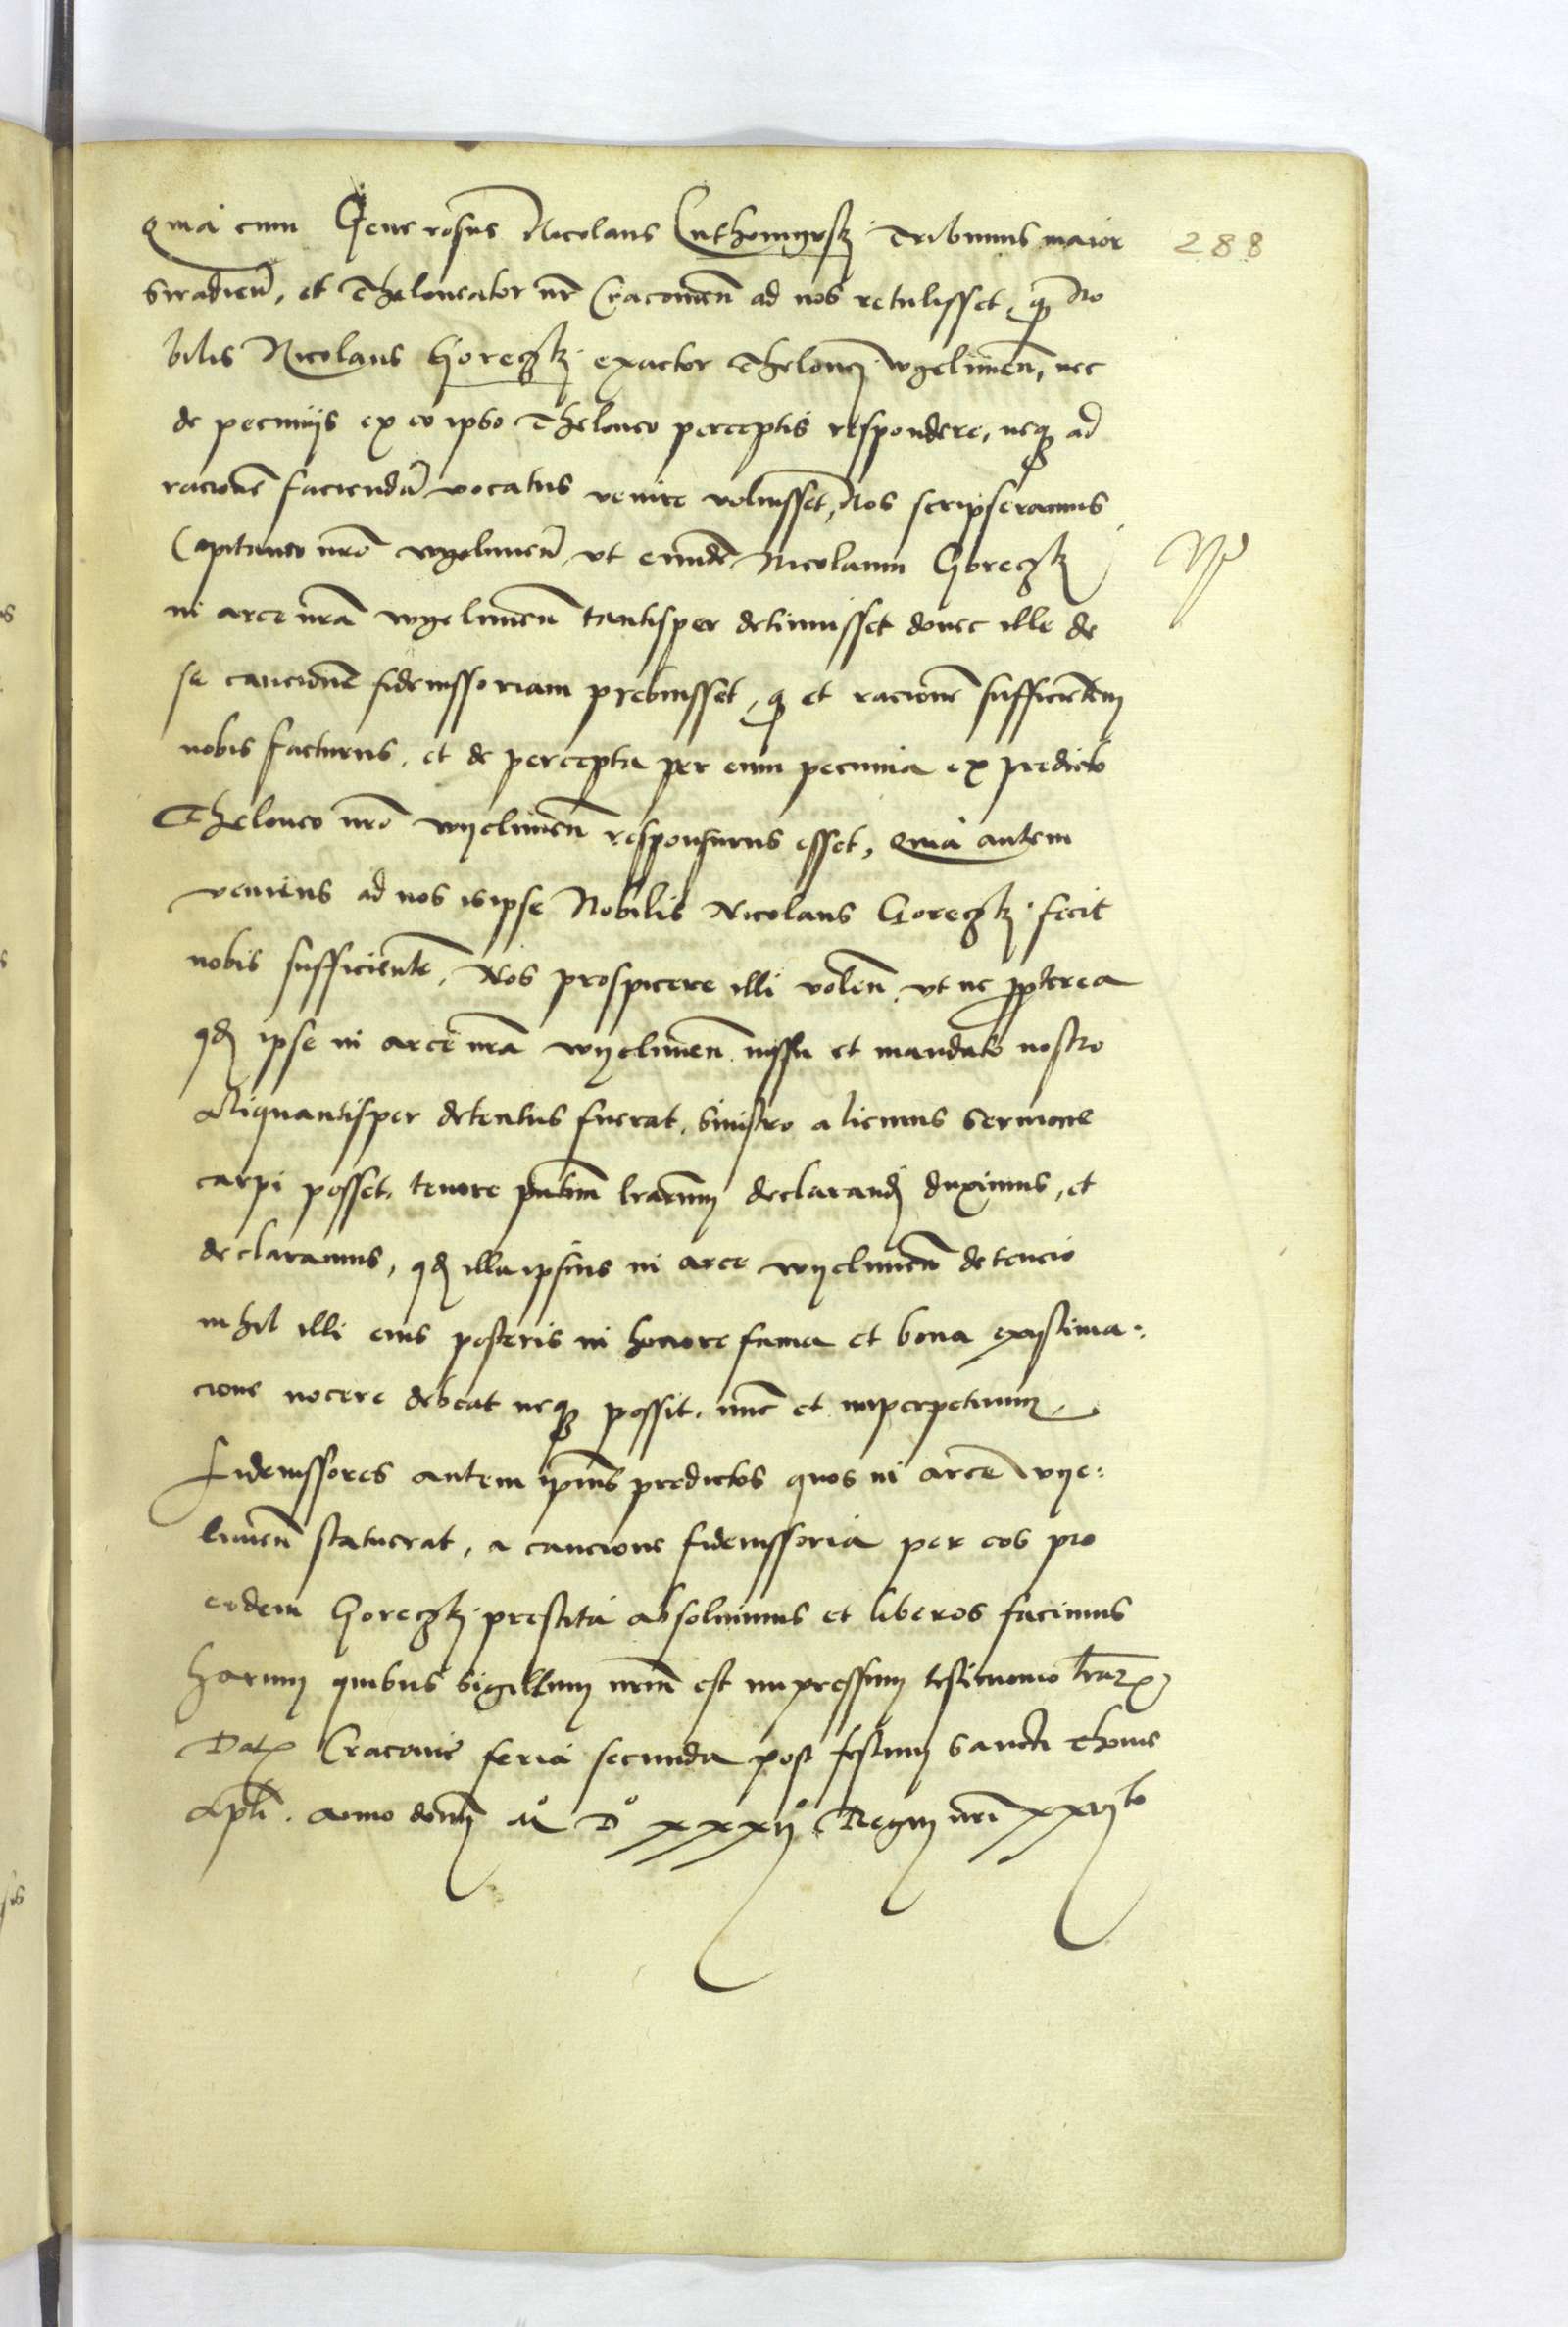 Quia cum Generosus Nicolaus Luthomyrsky Tribunus maior 288
Siradien, et Theloneator nr Cracovien ad nos retulisset, q No
bilis Nicolaus Goreczky exactor Thelonej wyelunen, nec
de pecunijs ex eo ipso Theloneo perceptis respondere, neq ad
racione faciendā vocatus venire voluisset, Nos scripseramus
Capitaneo nro wyelunen, vt eunde Nicolaum Goreczky
in arce nra wyelunen tantisper detinuisset donec ille de
se caucione fideiussoriam prebuisset, q et racione sufficientem
nobis facturus, et de percepta per eum pecunia ex predicto
Theloneo nro wyelunen responsurus esset, Quia autem
veniens ad nos is ipse Nobilis Nicolaus Goreczky fecit
nobis sufficiente, Nos prospicere illi volen, vt ne propterea
qd ipse in arce nra wyelunen iussu et mandato nostro
aliquantisper detentus fuerat, sinistro alicuius sermone
carpi posset, tenore pntium lrarum declarand duximus, et
declaramus, qd illa ipsius in arce wyelunen detencio
nihil illi eius posteris in honore fama et bona existima:
cione nocere debeat neq possit, nunc et inperpetuum,
Fideiussores autem ipius predictos quos in arce wye:
lunen statuerat, a caucione fideiussoria per eos pro
eodem Goreczky prestita absoluimus et liberos facimus
harum quibus sigillum nrum est impressum testimonio lrarum
Dat Cracovie feria secunda post festum sancti Thome
apli. anno domj Mº Dº xxxijº Regnj nri xxvjto